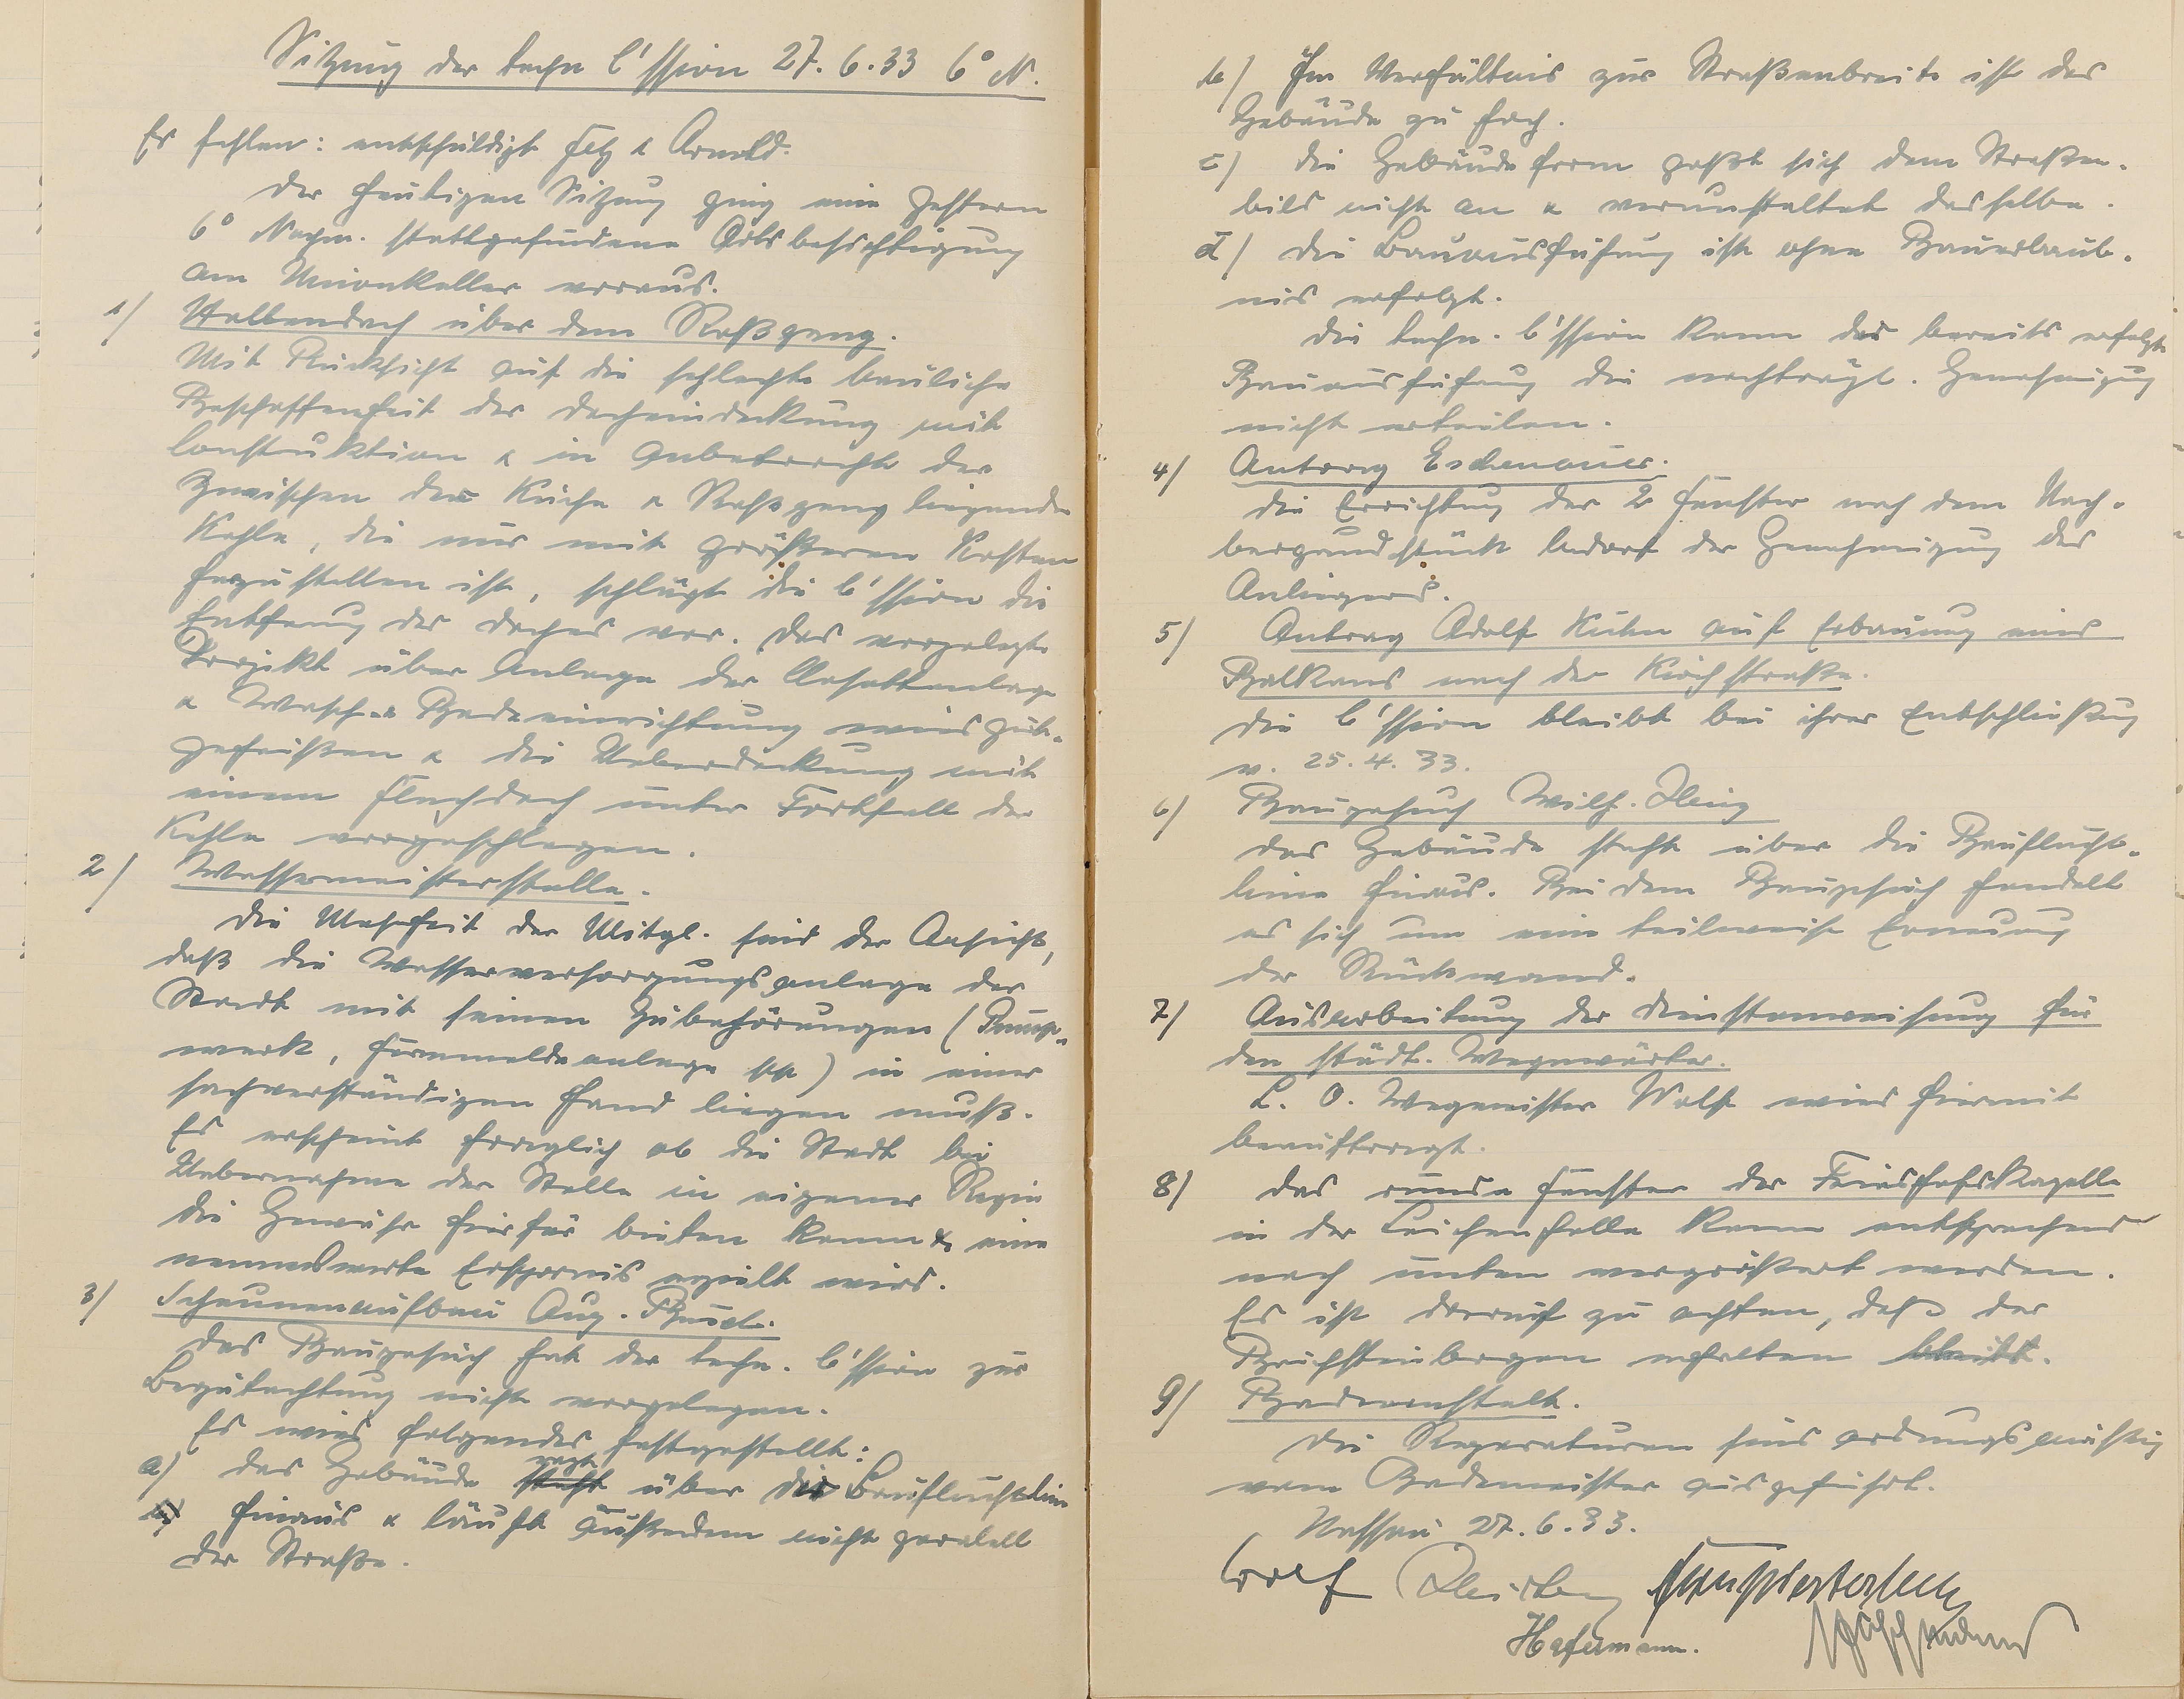 Sitzung der techn C'ssion 27. 6. 33 6° N.
Es fehlen: entschuldigt & Arnold.
Der heutigen Sitzung ging eine gestern
6° Nachm. stattgefundene Ortsbesichtigung
am Unionkeller voraus.
1/ Hallendach über dem
Mit Rücksicht auf die schlechte bauliche
Beschaffenheit der Dacheindeckung mit
Construktion & in Anbetracht der
zwischen der Küche & liegende
Kehle, die nur mit größeren Kosten
herzustellen ist, schlägt die C'ssion die
Entfernung des Daches vor. Das vorgelegte
Projekt über Anlage der Closettanlage
& Wasch- & Badeeinrichtung wird gut-
geheißen & die Ueberdeckung mit
einem Flachdach unter Fortfall der
Kehle vorgeschlagen.
2/ Wassermeisterstelle.
Die Mehrheit der Mitgl. sind der Ansicht,
daß die Wasserversorgungsanlage der
Stadt mit seinen Zubehörungen (Pump-
werk, Fernmeldeanlage pp) in einer
sachverständigen Hand liegen muß.
Es erscheint fraglich ob die Stadt bei
Uebernahme der Stelle in eigener Regie
die Gewähr hierfür bieten kann & eine
nennenswerte Ersparnis erzielt wird.
3/ Scheunenaufbau Aug. Bruch.
Das Baugesuch hat der techn. C'ssion zur
Begutachtung nicht vorgelegen.
Es wird folgendes festgestellt:
a) Das Gebäude steht ragt über die Baufluchtlinie
hinaus & läuft außerdem nicht paralell
der Straße.
b) Im Verhältnis zur Straßenbreite ist das
Gebäude zu hoch.
c) Die Gebäudeform paßt sich dem Straßen-
bild nicht an & verunstaltet dasselbe.
d) Die Bauausführung ist ohne Bauerlaub-
nis erfolgt.
Die techn. C'ssion kann der bereits erfolgte
Bauausführung die nachträgl. Genehmigung
nicht erteilen.
4/ Antrag Eschenauer.
Die Errichtung der 2 Fenster nach dem Nach-
bargrundstück bedarf der Genehmigung des
Anliegers.
5/ Antrag Adolf Kuhn auf Erbauung eines
Balkons nach der Kirchstraße.
Die C'ssion bleibt bei ihrer Entschließung
v. 25. 4. 33.
6/ Baugesuch Wilh.
Das Gebäude steht über die Bauflucht-
linie hinaus. Bei dem Baugesuch handelt
es sich um eine teilweise Erneuerung
der Rückwand.
7/ Ausarbeitung der Dienstanweisung für
den städt. Wegewärter.
L. O. Wegemeister Wolf wird hiermit
beauftragt.
8/ Das runde Fenster der Friedhofskapelle
in der Leichenhalle kann entsprechend
nach unten vergrößert werden.
Es ist darauf zu achten, daß der
Bruchsteinbogen erhalten bleibt.
9/ Badeanstalt.
Die Reparaturen sind ordnungsmäßig
vom Bademeister ausgeführt.
Nassau 27. 6. 33.
Hafermann.